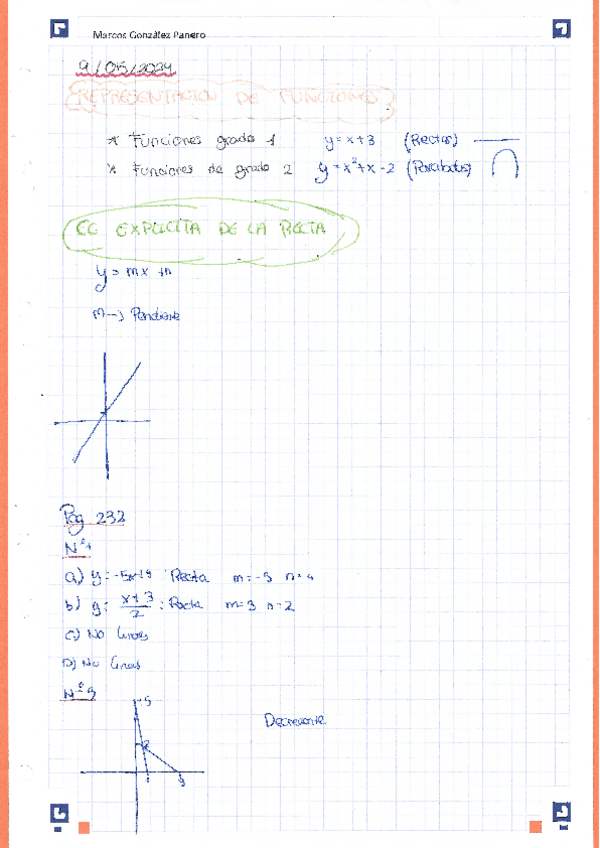 Marcos González Panero
9/05/2024
REPRESENTACION DE FUNCIONES
* Funciones grado 1 y=x+3 (Rectas)
* Funciones de grado 2 y=x²+x-2 (Parabolas)
EC EXPLICITA DE LA RECTA
y = mx +n
m-> Pendiente
Pag 232
Nº1
a) y=-5x+4 : Recta m=-5 n=4
b) y= x+3/2 : Recta m=3 n=2
C) No lineal
D) No lineal
Nº
5
Decreciente